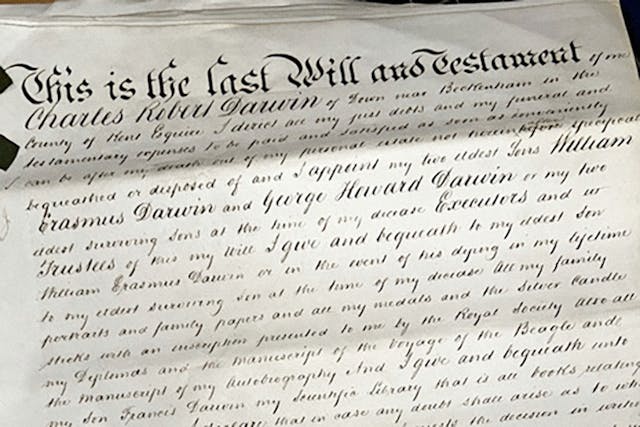 This is the last Will and Testament of me
Charles Robert Darwin of Down near Beckenham in the
County of Kent Esquire I direct all my just debts and my funeral and
testamentary expenses to be paid and satisfied as soon as conveniently
can be after my death out of my personal estate not hereinbefore specifically
bequeathed or disposed of and I appoint my two eldest Sons William
Erasmus Darwin and George Howard Darwin or my two
eldest surviving Sons at the time of my decease Executors and
Trustees of this my Will I give and bequeath to my eldest Son
William Erasmus Darwin or in the event of his dying in my lifetime
to my eldest surviving Son at the time of my decease all my family
portraits and family papers and all my medals and the Silver Candle
sticks with an inscription presented to me by the Royal Society Also all
my Diplomas and the manuscript of the Voyage of the Beagle and
the manuscript of my Autobiography And I give and bequeath unto
my Son Francis Darwin my Scientific Library that is all books relating
that in case any doubt shall arise as to
the decision in